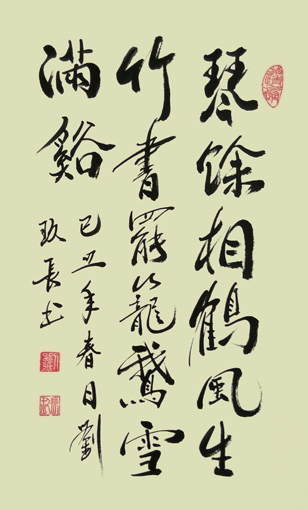 琴餘相鶴風生
竹書罷籠鵞雪
滿谿
己丑年春日劉
玖長书